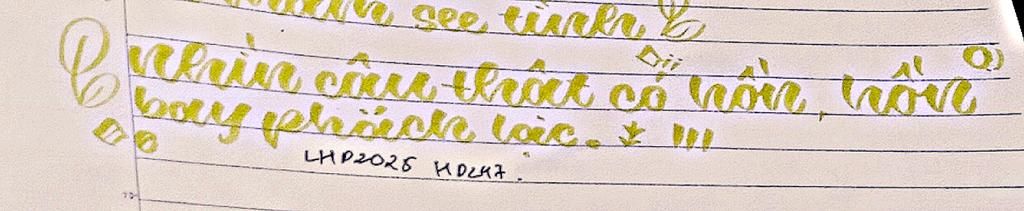 see tình
nhìn câu thật cổ hồn, hồn
bay phách lạc.
LHP2025 HD247.